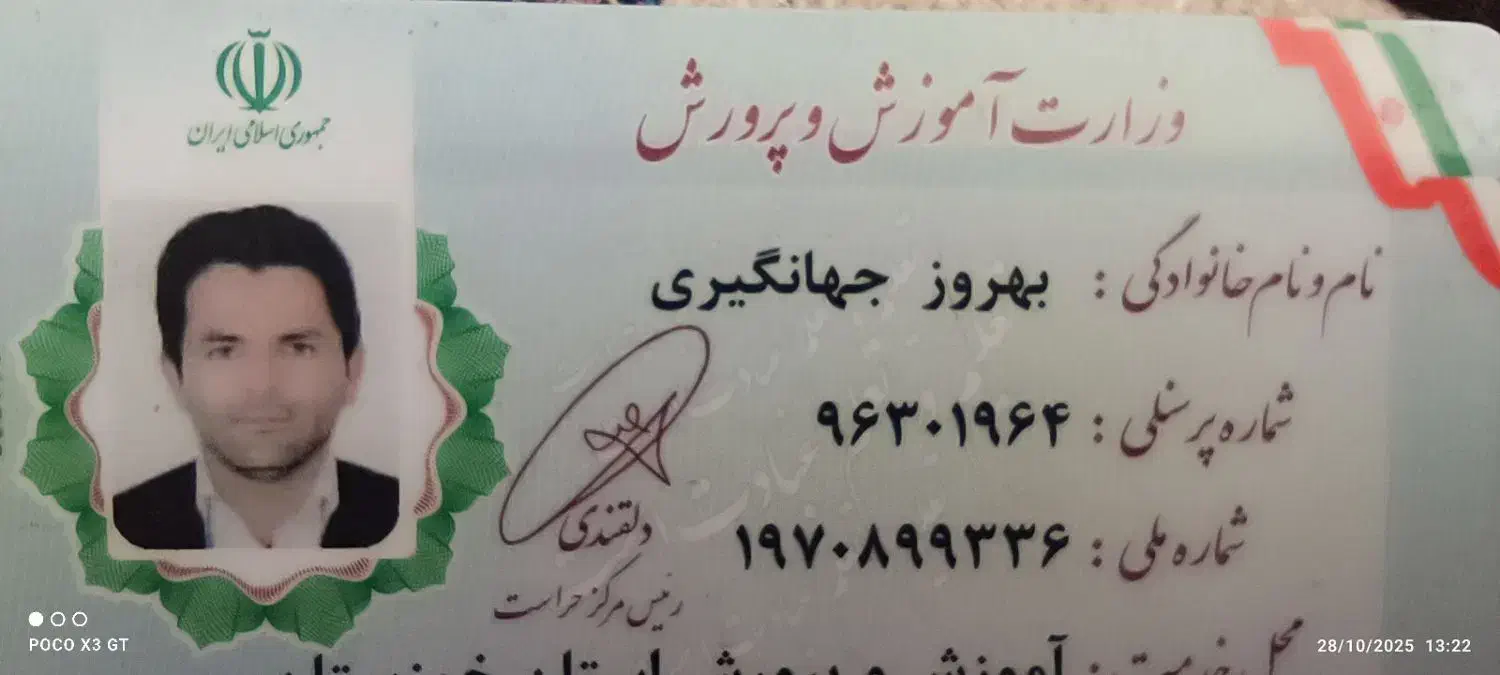 جمهوری اسلامی ایران
وزارت آموزش و پرورش
نام و نام خانوادگی : بهروز جهانگیری
شماره پرسنلی : ۹۶۳۰۱۹۶۴
شماره ملی : ۱۹۷۰۸۹۹۳۳۶
دلقندی
رئیس مرکز حراست
محل خدمت : آموزش و پرورش استان خوزستان
POCO X3 GT
28/10/2025 13:22